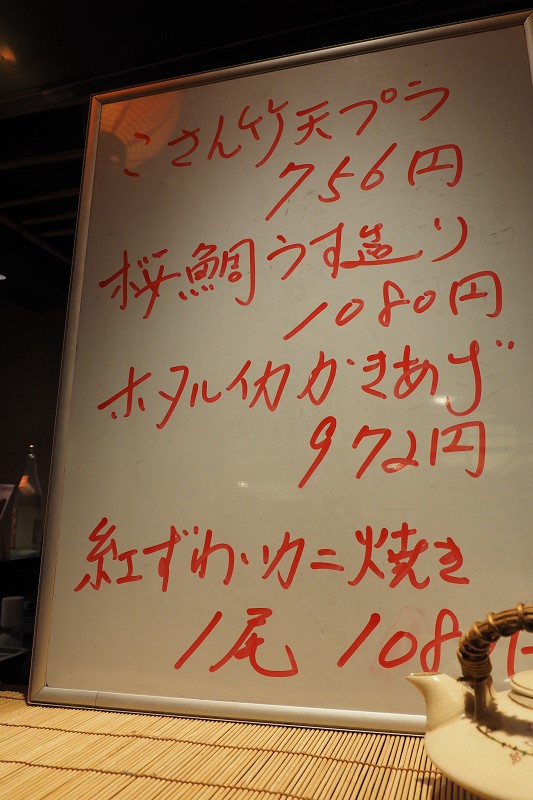 こさん竹天プラ
756円
桜鯛うす造り
1080円
ホタルイカかきあげ
972円
紅ずわいカニ焼き
1尾 1080円